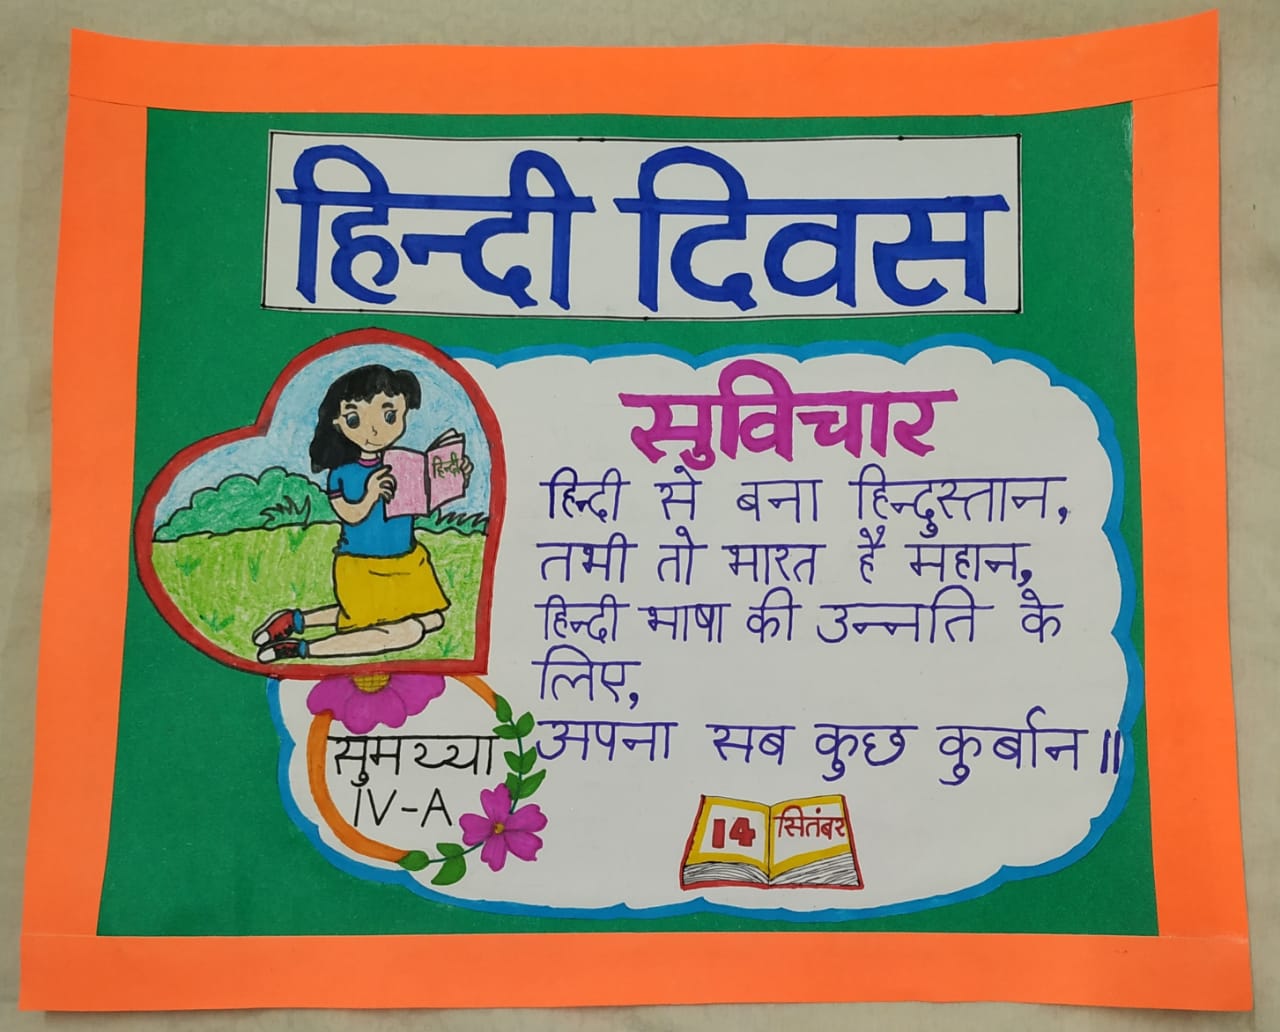 हिन्दी दिवस
सुविचार
हिन्दी से बना हिन्दुस्तान,
तभी तो भारत है महान,
हिन्दी भाषा की उन्नति के
लिए,
अपना सब कुछ कुर्बान॥
हिन्दी
सुमय्या
IV-A
14 सितंबर